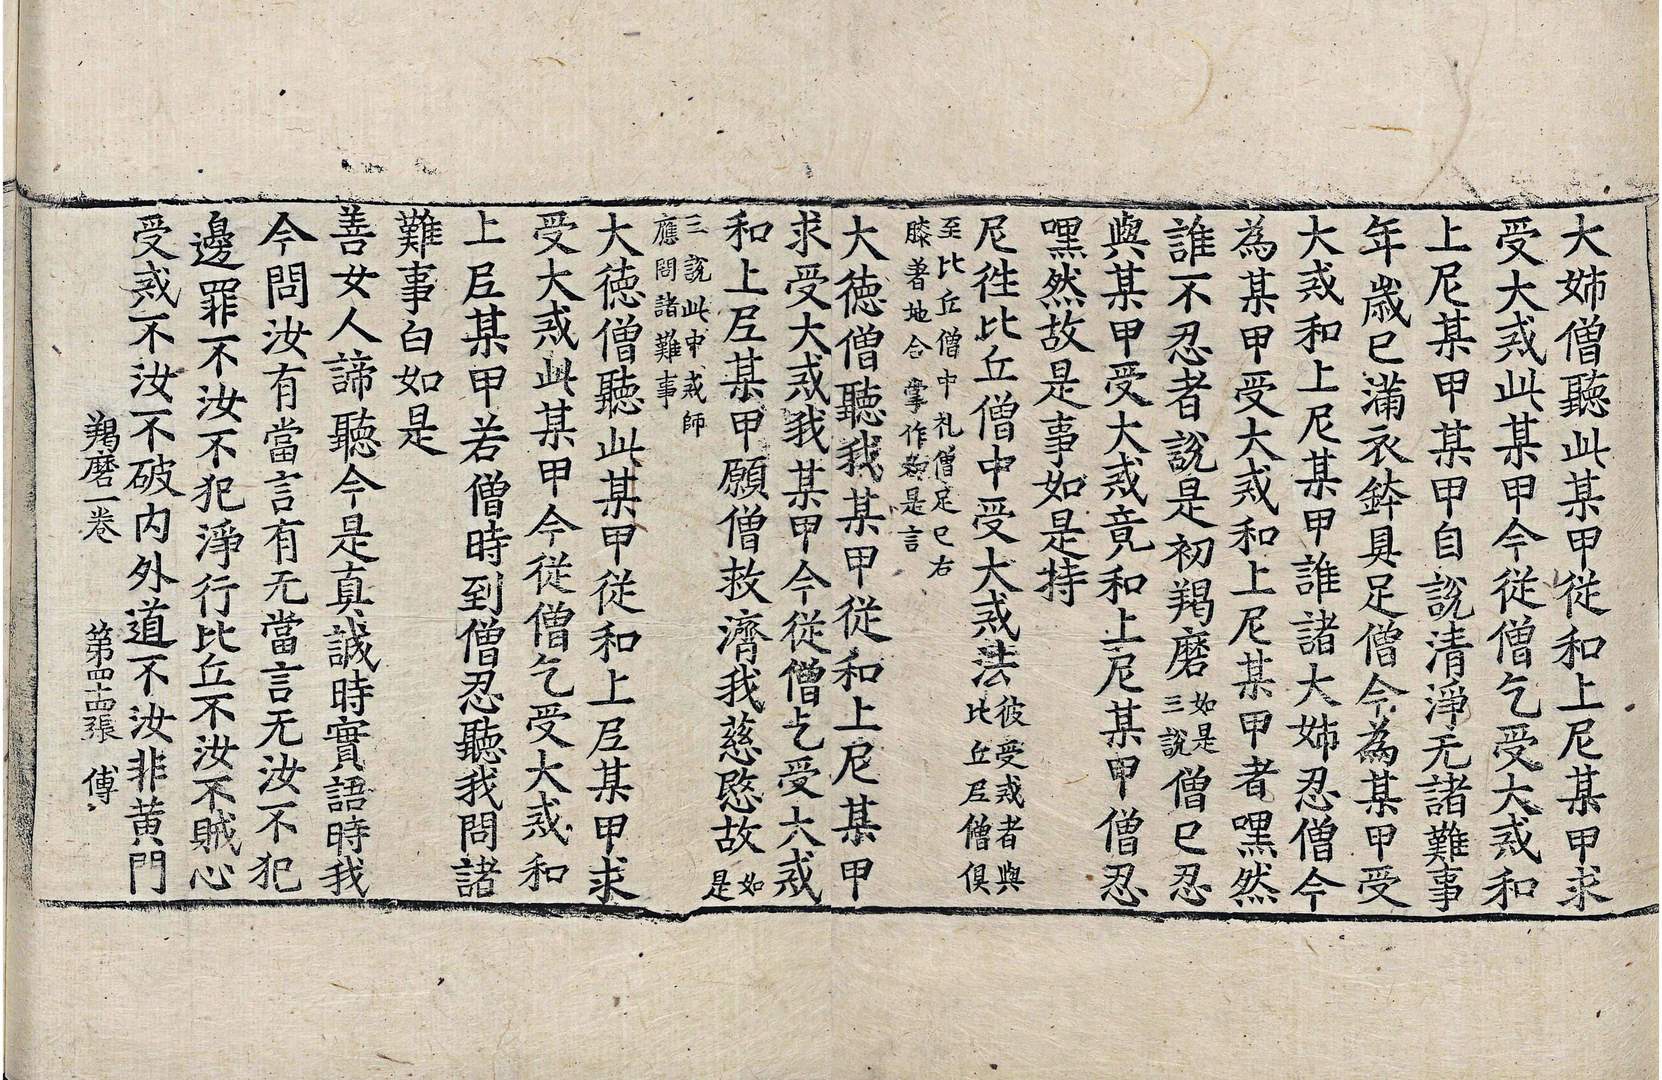 大姉僧聽此某甲從和上尼某甲求
受大戒此某甲今從僧乞受大戒和
上尼某甲某甲自說清淨无諸難事
年歲已滿衣鉢具足僧今為某甲受
大戒和上尼某甲誰諸大姉忍僧今
為某甲受大戒和上尼某甲者嘿然
誰不忍者說是初羯磨如是三說僧已忍
與某甲受大戒竟和上尼某甲僧忍
嘿然故是事如是持
尼徃比丘僧中受大戒法彼受戒者與比丘尼僧俱
至比丘僧中礼僧足已右
膝著地合掌作如是言
大徳僧聽我某甲從和上尼某甲
求受大戒我某甲今從僧乞受大戒
和上尼某甲願僧救濟我慈愍故如是
三說此中戒師
應問諸難事
大徳僧聽此某甲從和上尼某甲求
受大戒此某甲今從僧乞受大戒和
上尼某甲若僧時到僧忍聽我問諸
難事白如是
善女人諦聽今是真誠時實語時我
今問汝有當言有无當言无汝不犯
邊罪不汝不犯淨行比丘不汝不賊心
受戒不汝不破內外道不汝非黃門
羯磨一卷 第四十四張 傅